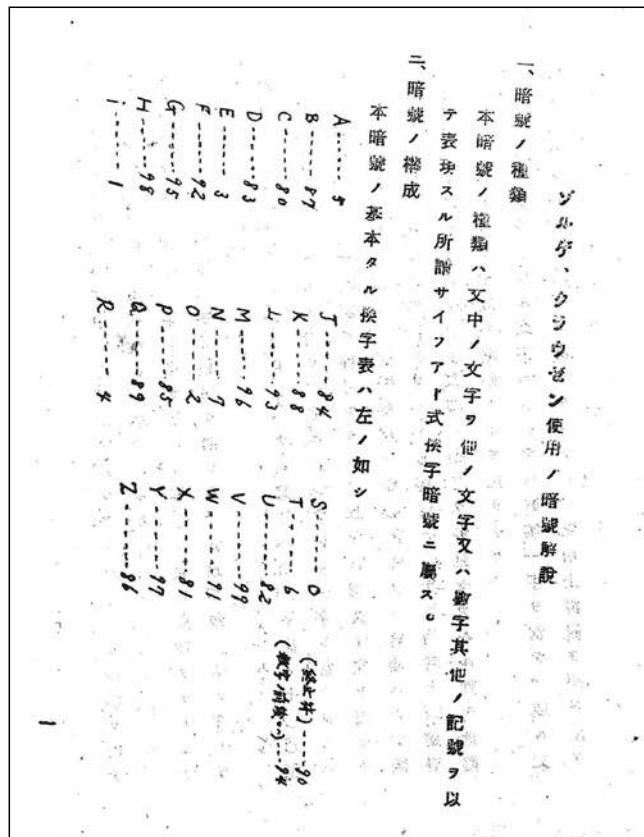 ゾルゲ、クラウゼン使用ノ暗號解說
一、暗號ノ種類
本暗號ノ種類ハ文中ノ文字ヲ他ノ文字又ハ數字其他ノ記號ヲ以
テ表現スル所謂サイフアー式換字暗號ニ屬ス。
二、暗號ノ構成
本暗號ノ基本タル換字表ハ左ノ如シ
A-------5
B-------87
C-------80
D-------83
E-------3
F-------92
G-------95
H-------98
i-------1
J-------84
K-------88
L-------93
M-------96
N-------7
O-------2
P-------85
Q-------89
R-------4
S-------0
T-------6
U-------82
V-------99
W-------91
X-------81
Y-------97
Z-------86
(終止符)----90
(數字ノ前後)----94
1